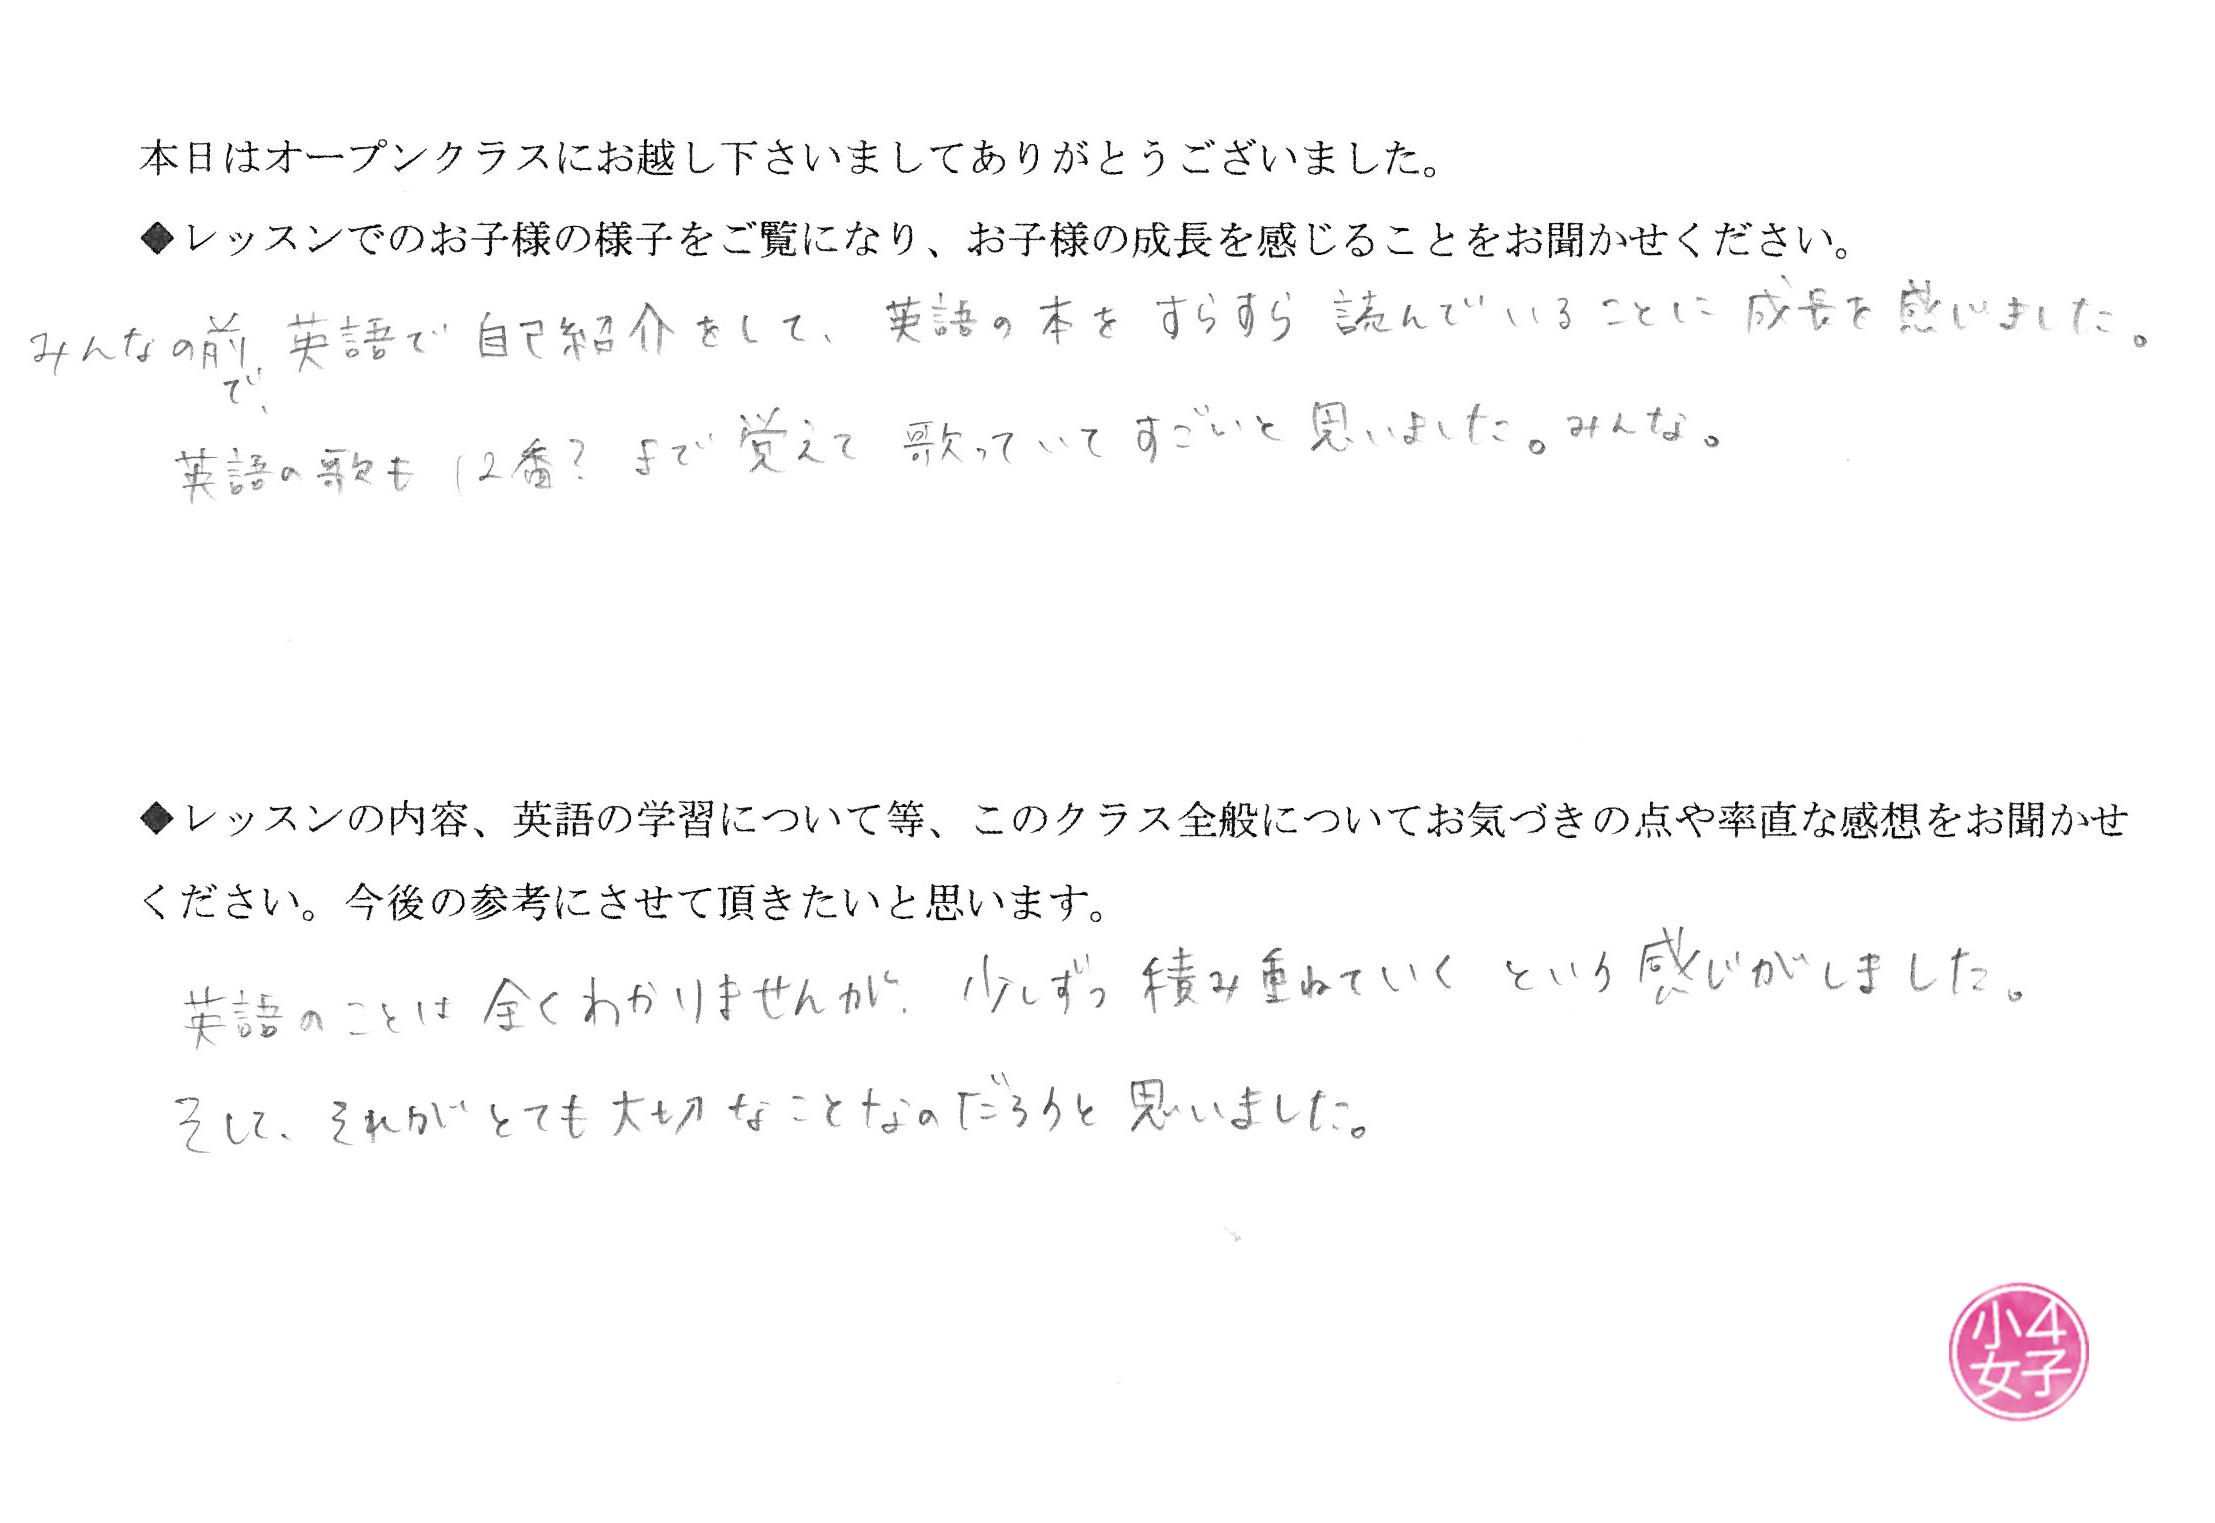 本日はオープンクラスにお越し下さいましてありがとうございました。
◆レッスンでのお子様の様子をご覧になり、お子様の成長を感じることをお聞かせください。
みんなの前で、英語で自己紹介をして、英語の本をすらすら読んでいることに成長を感じました。
英語の歌も12番?まで覚えて歌っていてすごいと思いました。みんな。
◆レッスンの内容、英語の学習について等、このクラス全般についてお気づきの点や率直な感想をお聞かせ
ください。今後の参考にさせて頂きたいと思います。
英語のことは全くわかりませんが、少しずつ積み重ねていくという感じがしました。
そして、それがとても大切なことなのだろうと思いました。
小4
女子